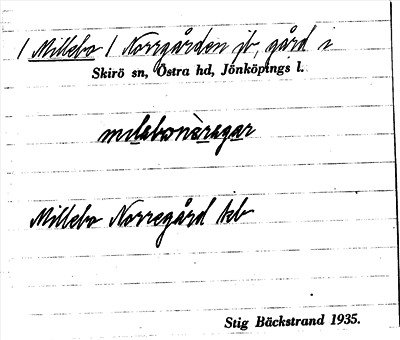 / Millebo / Norrgården jb, gård i
Skirö sn, Östra hd, Jönköpings l.
Millebo Norregård kb
Stig Bäckstrand 1935.